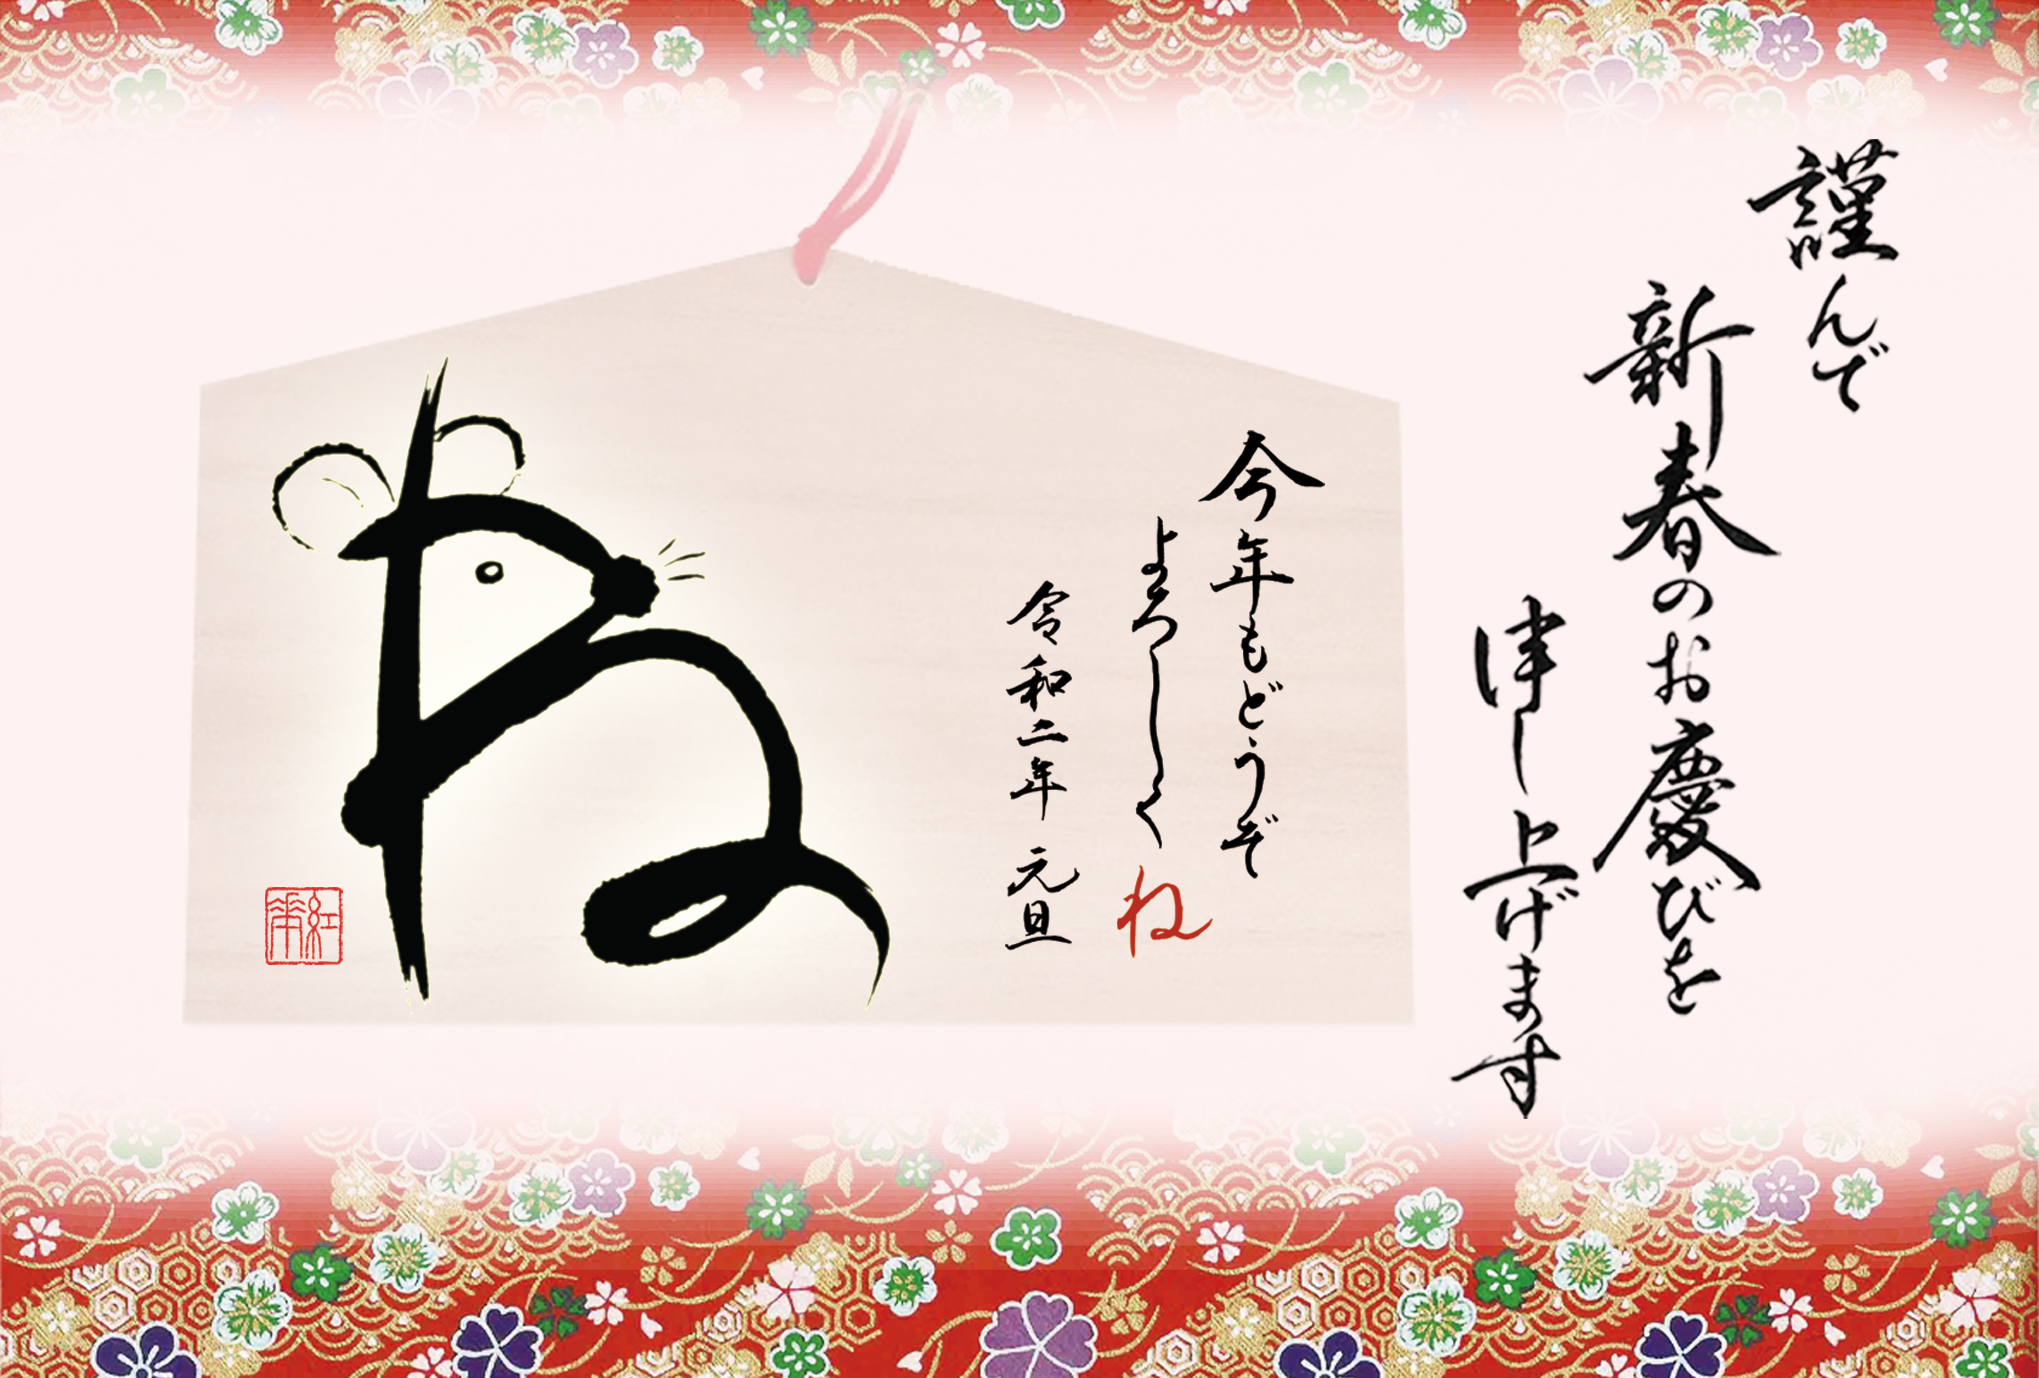 謹んで
新春のお慶びを
申し上げます
今年もどうぞ
よろしくね
令和二年 元旦
ね